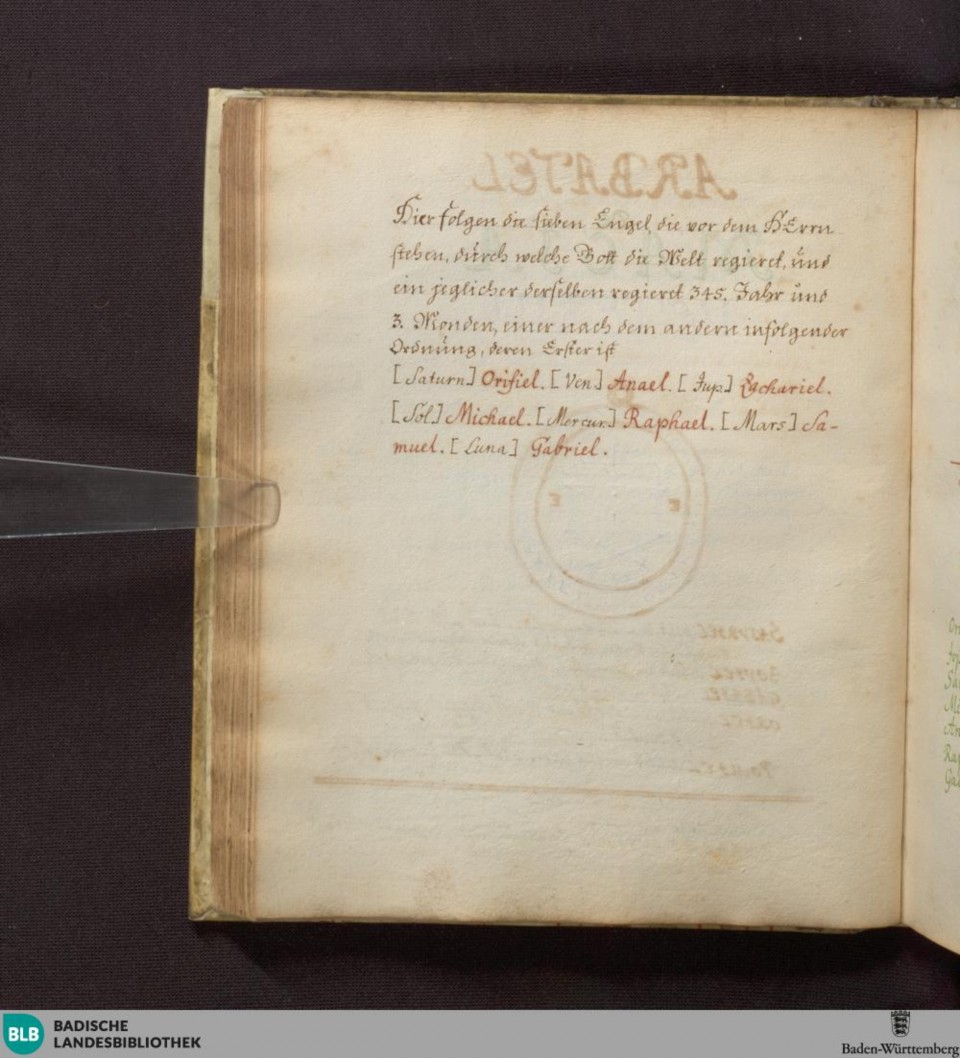 ARBATEL
Hier folgen die sieben Engel, die vor dem HErrn
stehen, durch welche Gott die Welt regieret, und
ein jeglicher derselben regieret 345. Jahr und
3. Monden, einer nach dem andern infolgender
Ordnung, deren Erster ist
[Saturn] Orifiel. [Ven] Anael. [Jup.] Zachariel.
[Sol] Michael. [Mercur.] Raphael. [Mars] Sa-
muel. [Luna] Gabriel.
BLB BADISCHE
LANDESBIBLIOTHEK
Baden-Württemberg